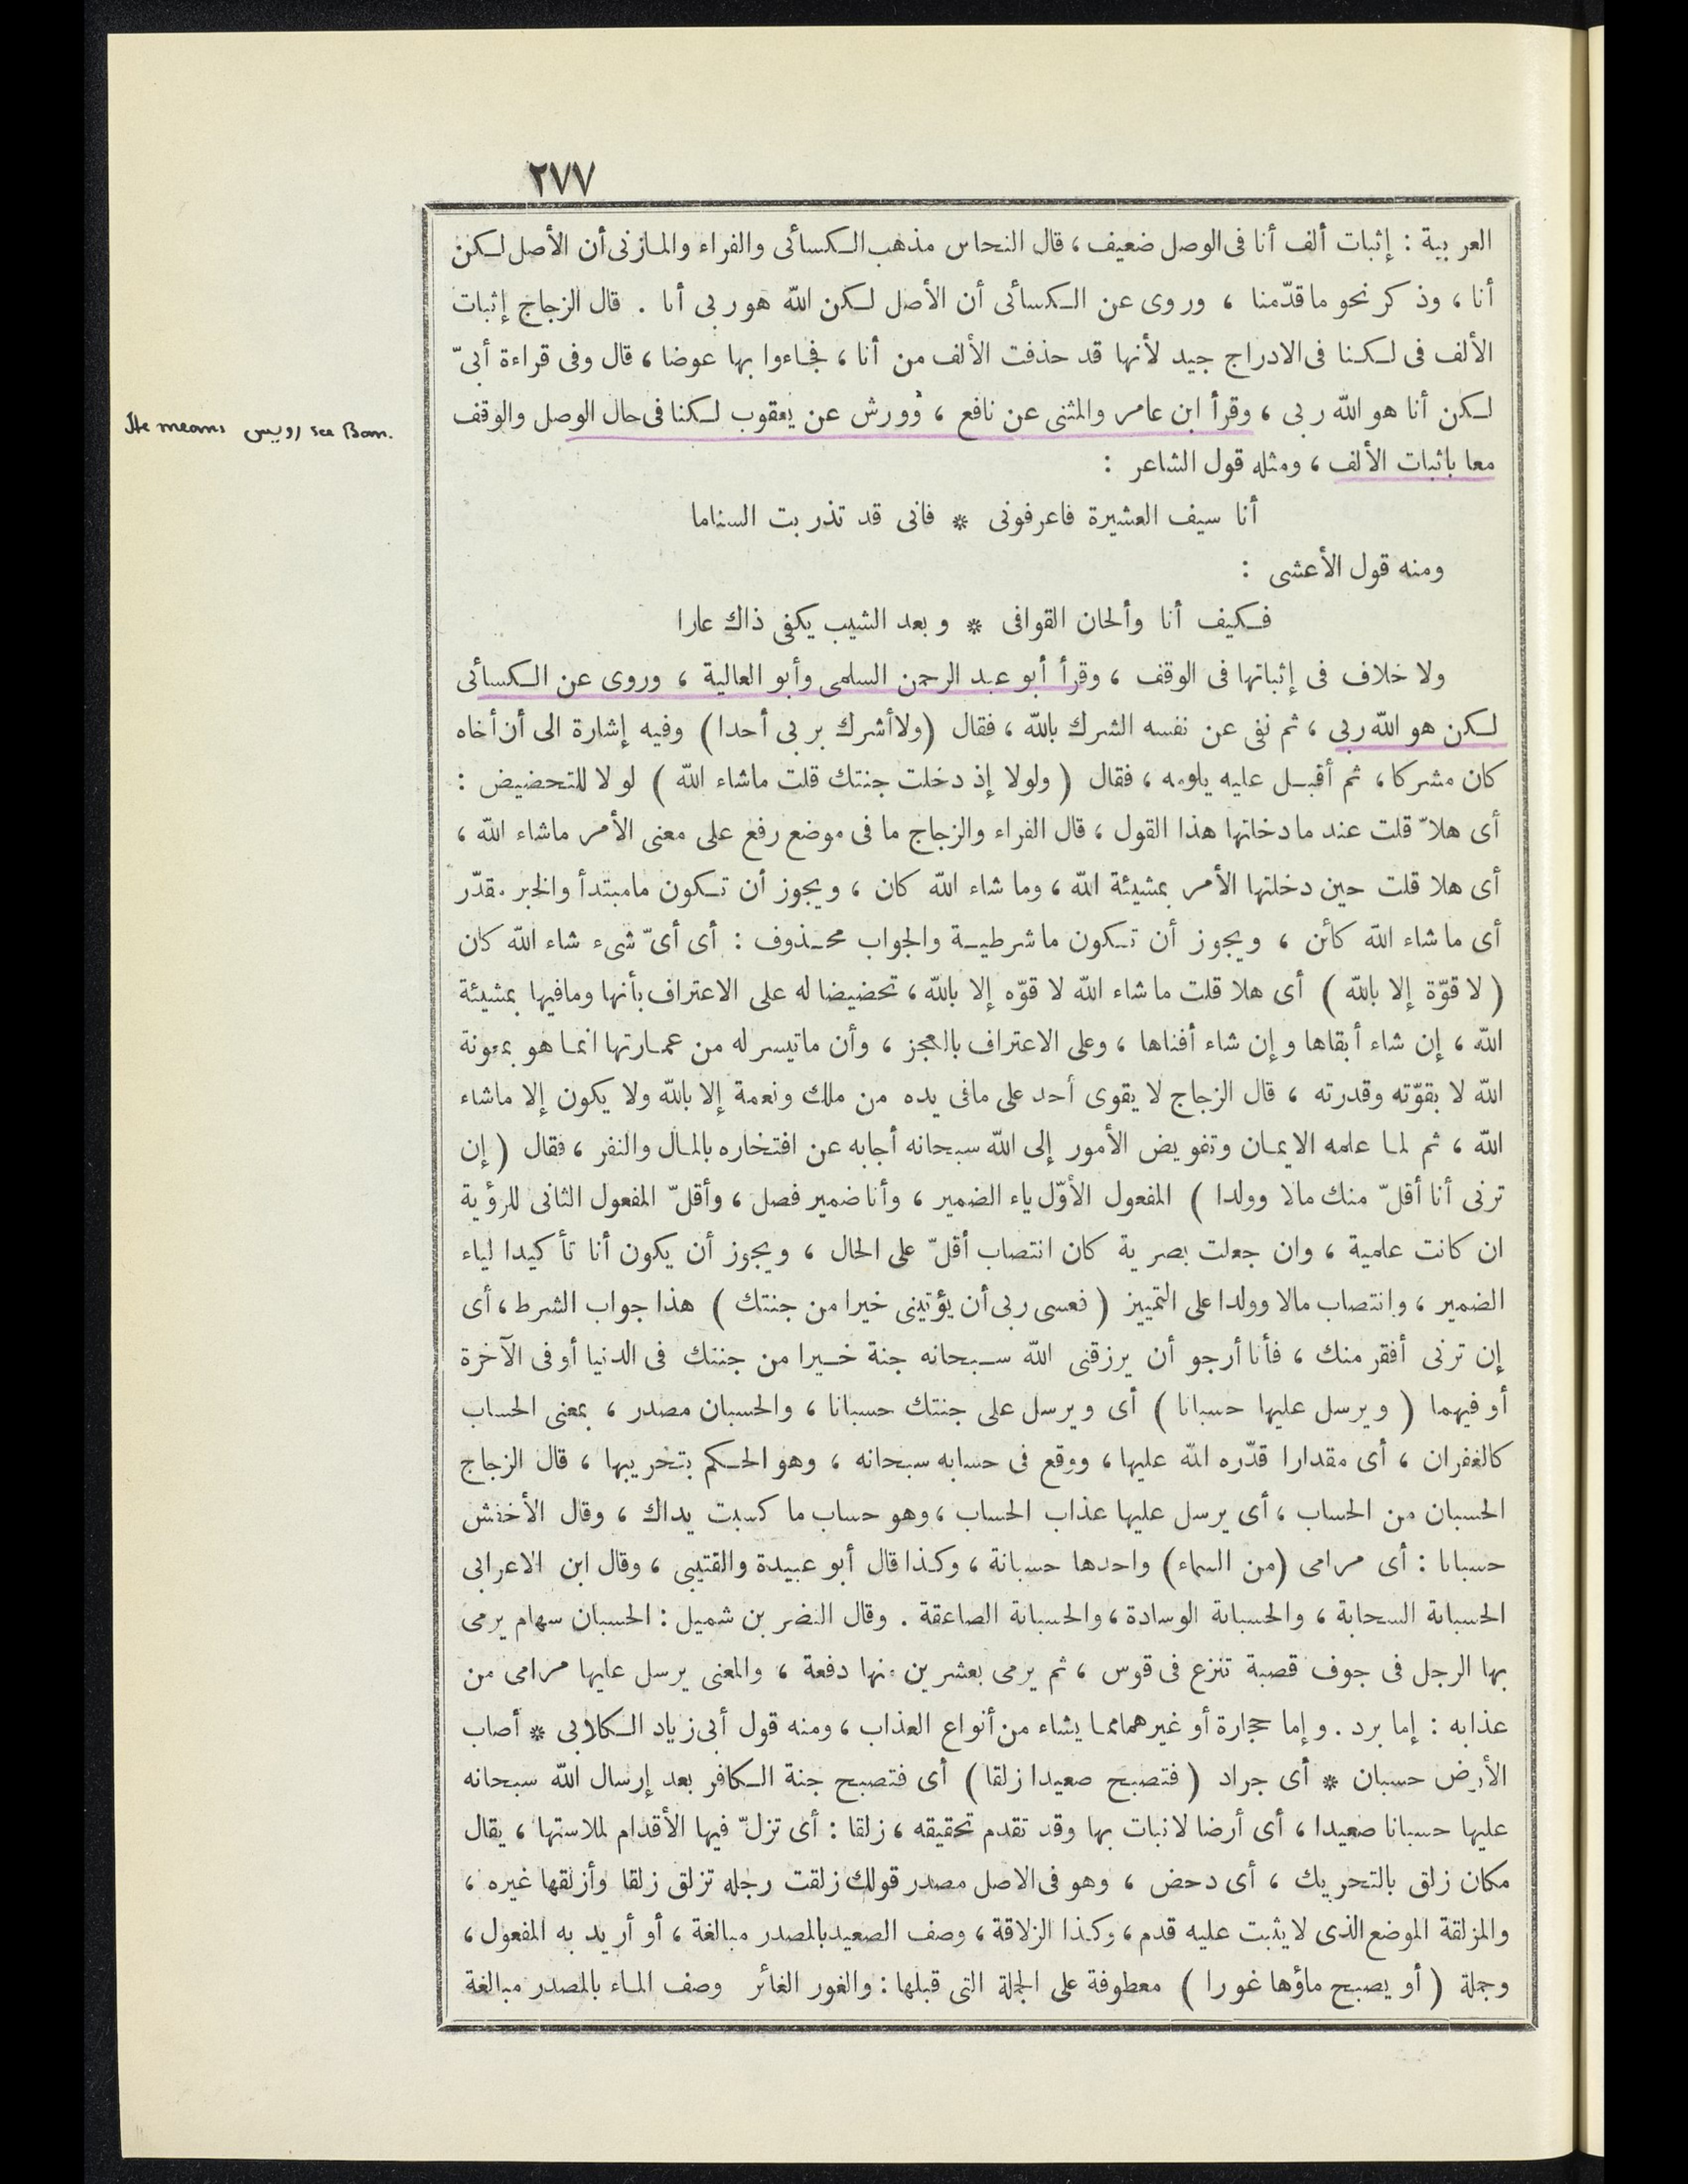 ٢٧٧
العربية : إثبات ألف أنا فى الوصل ضعيف ، قال النحاس مذهب الكسائى والفراء والمازنى أن الأصل لكن
أنا ، وذكر نحو ماقدّمنا ، وروى عن الكسائى أن الأصل لكن الله هو ربى أنا . قال الزجاج إثبات
الألف فى لكنا فى الادراج جيد لأنها قد حذفت الألف من أنا ، فجاءوا بها عوضا ، قال وفى قراءة أبىّ
لكن أنا هو الله ربى ، وقرأ ابن عامر والمثنى عن نافع ، وورش عن يعقوب لكنا فى حال الوصل والوقف
He means رويس see Ban.
معا باثبات الألف ، ومثله قول الشاعر :
أنا سيف العشيرة فاعرفونى * فانى قد تذربت السناما
ومنه قول الأعشى :
فكيف أنا وألحان القوافى * وبعد الشيب يكفى ذاك عارا
ولا خلاف فى إثباتها فى الوقف ، وقرأ أبو عبد الرحمن السلمى وأبو العالية ، وروى عن الكسائى
لكن هو الله ربى ، ثم نفى عن نفسه الشرك بالله ، فقال (ولا أشرك بربى أحدا) وفيه إشارة الى أن أخاه
كان مشركا ، ثم أقبل عليه يلومه ، فقال ( ولولا إذ دخلت جنتك قلت ماشاء الله ) لولا للتحضيض :
أى هلاّ قلت عند ما دخلتها هذا القول ، قال الفراء والزجاج ما فى موضع رفع على معنى الأمر ماشاء الله ،
أى هلا قلت حين دخلتها الأمر بمشيئة الله ، وما شاء الله كان ، ويجوز أن تكون مامبتدأ والخبر مقدّر
أى ما شاء الله كائن ، ويجوز أن تكون ما شرطية والجواب محذوف : أى أىّ شىء شاء الله كان
( لا قوّة إلا بالله ) أى هلا قلت ما شاء الله لا قوّه إلا بالله ، تحضيضا له على الاعتراف بأنها ومافيها بمشيئة
الله ، إن شاء أبقاها وإن شاء أفناها ، وعلى الاعتراف بالعجز ، وأن ماتيسر له من عمارتها انما هو بمعونة
الله لا بقوّته وقدرته ، قال الزجاج لا يقوى أحد على مافى يده من ملك ونعمة إلا بالله ولا يكون إلا ماشاء
الله ، ثم لما علمه الايمان وتفويض الأمور إلى الله سبحانه أجابه عن افتخاره بالمال والنفر ، فقال ( إن
ترنى أنا أقلّ منك مالا وولدا ) المفعول الأوّل ياء الضمير ، وأنا ضمير فصل ، وأقلّ المفعول الثانى للرؤية
ان كانت علمية ، وان جعلت بصرية كان انتصاب أقلّ على الحال ، ويجوز أن يكون أنا تأكيدا لياء
الضمير ، وانتصاب مالا وولدا على التمييز ( فعسى ربى أن يؤتينى خيرا من جنتك ) هذا جواب الشرط ، أى
إن ترنى أفقر منك ، فأنا أرجو أن يرزقنى الله سبحانه جنة خيرا من جنتك فى الدنيا أو فى الآخرة
أو فيهما ( ويرسل عليها حسبانا ) أى ويرسل على جنتك حسبانا ، والحسبان مصدر ، بمعنى الحساب
كالغفران ، أى مقدارا قدّره الله عليها ، ووقع فى حسابه سبحانه ، وهو الحكم بتخريبها ، قال الزجاج
الحسبان من الحساب ، أى يرسل عليها عذاب الحساب ، وهو حساب ما كسبت يداك ، وقال الأخفش
حسبانا : أى مرامى (من السماء) واحدها حسبانة ، وكذا قال أبو عبيدة والقتيبى ، وقال ابن الاعرابى
الحسبانة السحابة ، والحسبانة الوسادة ، والحسبانة الصاعقة . وقال النضر بن شميل : الحسبان سهام يرمى
بها الرجل فى جوف قصبة تنزع فى قوس ، ثم يرمى بعشرين منها دفعة ، والمعنى يرسل عليها مرامى من
عذابه : إما برد . وإما حجارة أو غيرهما مما يشاء من أنواع العذاب ، ومنه قول أبى زياد الكلابى * أصاب
الأرض حسبان * أى جراد ( فتصبح صعيدا زلقا ) أى فتصبح جنة الكافر بعد إرسال الله سبحانه
عليها حسبانا صعيدا ، أى أرضا لا نبات بها وقد تقدم تحقيقه ، زلقا : أى تزلّ فيها الأقدام لملاستها ، يقال
مكان زلق بالتحريك ، أى دحض ، وهو فى الاصل مصدر قولك زلقت رجله تزلق زلقا وأزلقها غيره ،
والمزلقة الموضع الذى لا يثبت عليه قدم ، وكذا الزلاقة ، وصف الصعيد بالمصدر مبالغة ، أو أريد به المفعول ،
وجملة ( أو يصبح ماؤها غورا ) معطوفة على الجملة التى قبلها : والغور الغائر وصف الماء بالمصدر مبالغة